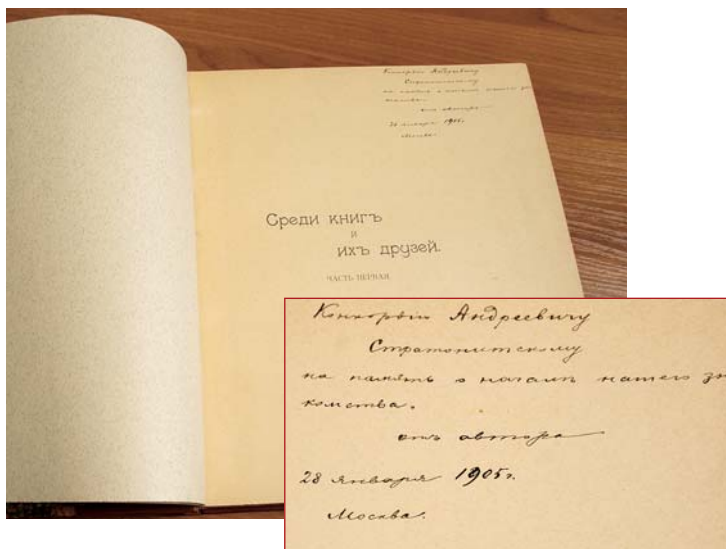 Конкордію Андреевичу
Стратонитскому
на память о началѣ нашего зна
комства.
отъ автора
28 января 1905г.
Москва.
Среди книгъ
и
ихъ друзей.
ЧАСТЬ ПЕРВАЯ.
Конкордію Андреевичу
Стратонитскому
на память о началѣ нашего зн
комства.
отъ автора
28 января 1905г.
Москва.